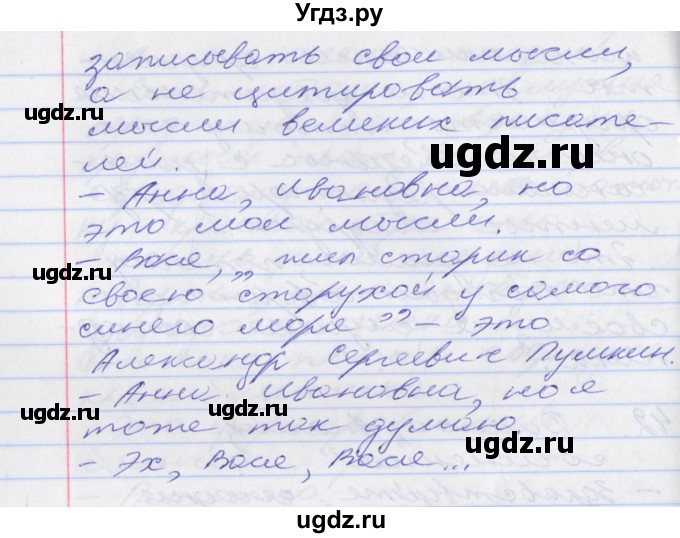 Угдз.ру
записывать свои мысли,
а не цитировать
мысли великих писате-
лей.
- Анна, Ивановна, но
это мои мысли.
- Вася, „жил старик со
своею старухой у самого
синего моря” - это
Александр Сергеевич Пушкин.
- Анна Ивановна, но я
тоже так думаю
- Эх, Вася, Вася...
ugdz.ru
ugdz.ru
ugdz.ru
ugdz.ru
ugdz.ru
ugdz.ru
ugdz.ru
ugdz.ru
ugdz.ru